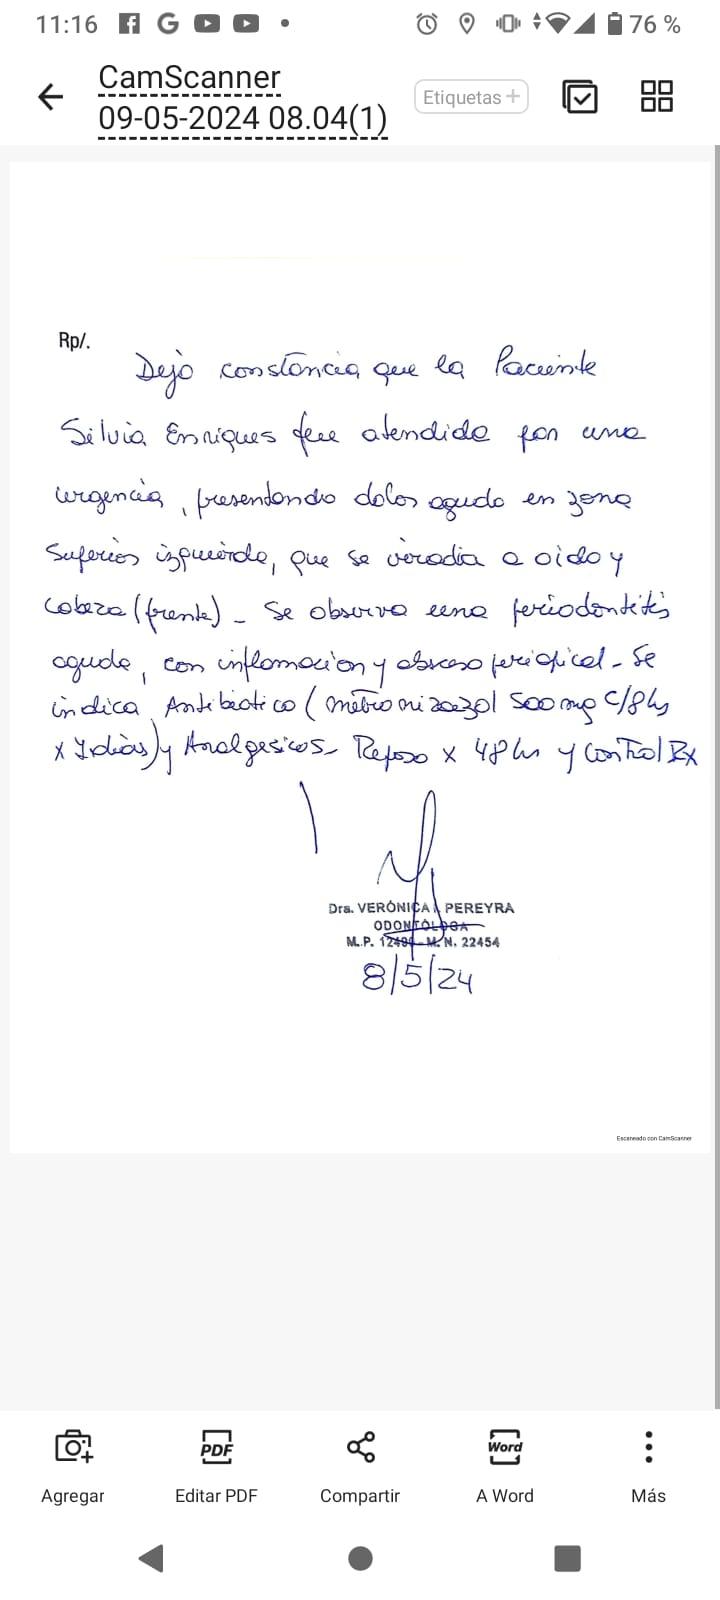 11:16
76 %
CamScanner
09-05-2024 08.04(1)
Etiquetas+
Rp/.
Dejo constancia que la Paciente
Silvia Enriques fue atendida por una
urgencia, presentando dolor agudo en zona
superior izquierda, que se irradia a oido y
cabeza (frente) - Se observa una periodontitis
aguda, con inflamacion y absceso periapical - Se
indica Antibiótico (metronidazol 500 mg c/8hs
x 7 días) y Analgesicos - Reposo x 48 hs y Control RX
Dra. VERÓNICA PEREYRA
ODONTÓLOGA
M.P. M.N. 22454
8/5/24
Escaneado con CamScanner
Agregar
PDF
Editar PDF
Compartir
Word
A Word
Más